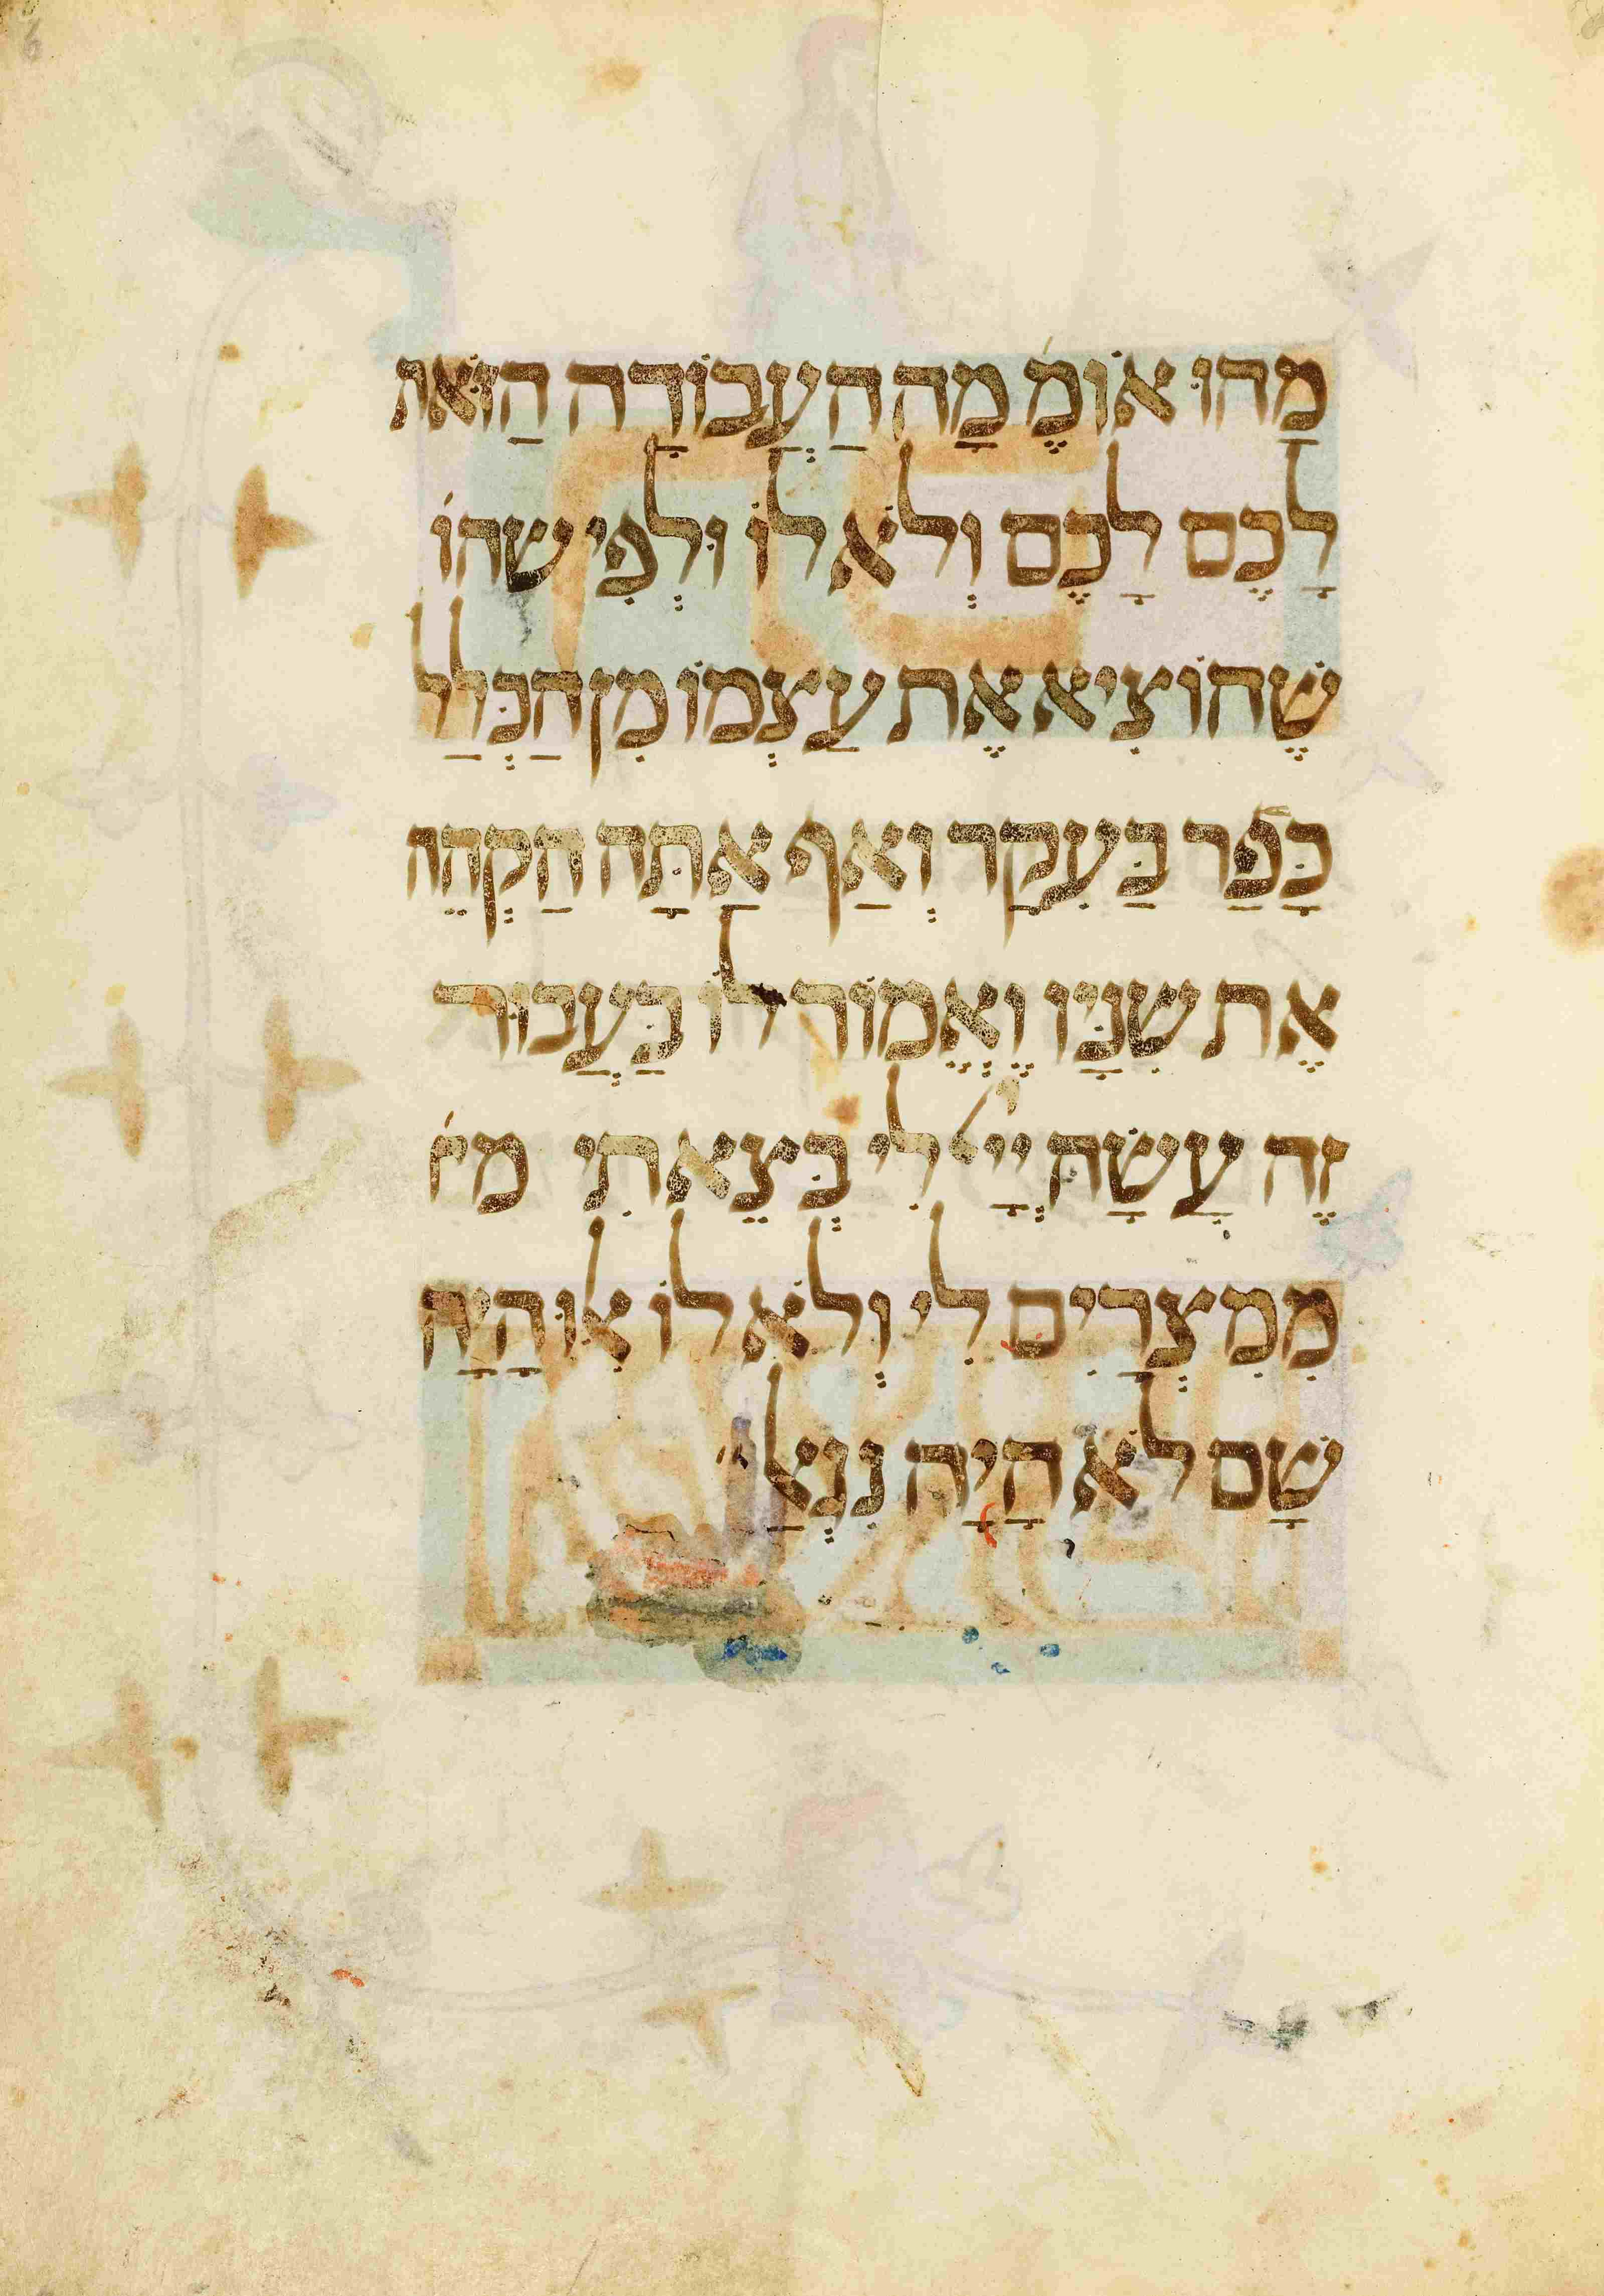 מַהוּ אוֹמֶ׳ מָה הַעֲבוֹדָה הַזֹּאת
לָכֶם לָכֶם וְלֹא לוֹ וּלְפִי שהו׳
שֶׁהוֹצִיא אֶת עַצְמוֹ מִן הַכְּלַל
כָּפַר בַּעִקָר וְאַף אַתָּה הַקְהֵה
אֶת שִׁנָּיו וֶאֱמוֹר לו בַּעֲבוּר
זֶה עָשָׂה יְיָ לִי בְּצֵאתִי מִמ׳
מִמִּצְרַיִם לִי וְלֹא לוֹ אִלּוּ הָיָה
שָׁם לֹא הָיָה נִגְאַל׳